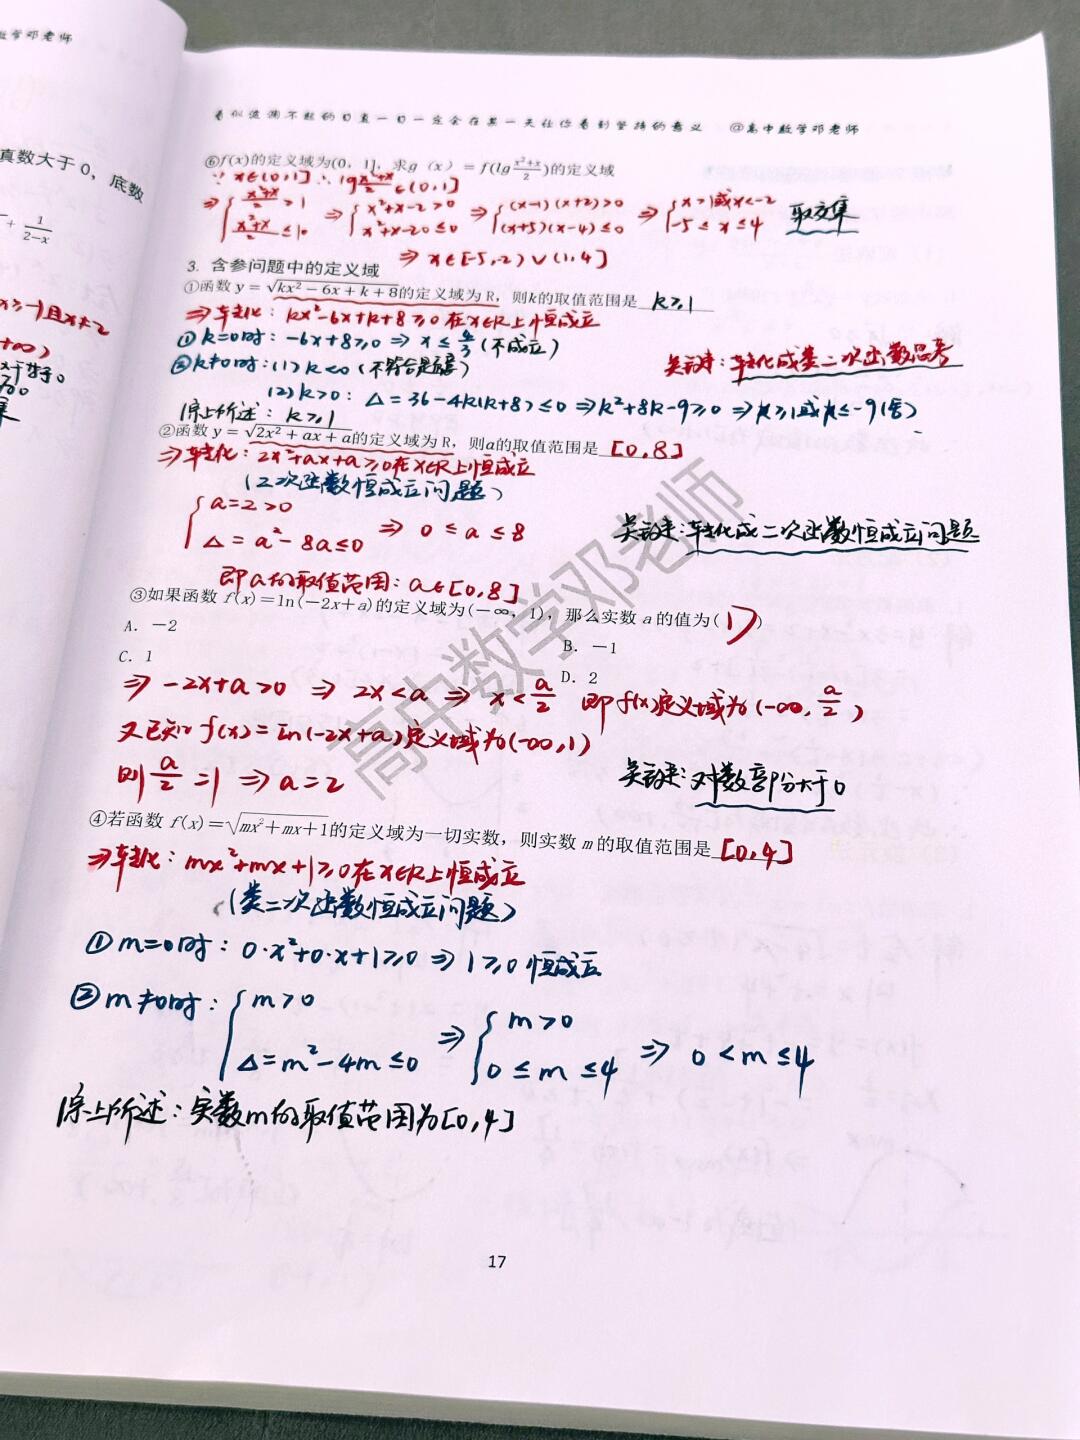 数学邓老师
看似波澜不惊的日复一日一定会在某一天让你看到坚持的意义 @高中数学邓老师
真数大于0，底数
+ 1/(2−x)
x≥-1且x≠2
+∞)
⑥f(x)的定义域为(0，1]，求g（x）＝f(lg (x²+x)/2)的定义域
∵ x∈(0,1] ∴ lg (x²+x)/2 ∈(0,1]
⇒ { (x²+x)/2 > 1 ⇒ { x²+x-2>0 ⇒ { (x-1)(x+2)>0 ⇒ { x>1或x<-2
(x²+x)/2 ≤ 10 x²+x-20≤0 (x+5)(x-4)≤0 -5≤x≤4 取交集
⇒ x∈[-5,-2)∪(1,4]
3. 含参问题中的定义域
①函数 y＝√(kx²−6x+k+8)的定义域为 R，则k的取值范围是 k≥1
⇒转化：kx²-6x+k+8≥0在x∈R上恒成立
①k=0时：-6x+8≥0 ⇒ x≤4/3 (不成立)
关键：转化成类二次函数思考
②k≠0时：(1) k<0 (不符合题意)
(2) k>0：Δ=36-4k(k+8)≤0 ⇒k²+8k-9≥0 ⇒k≥1或k≤-9(舍)
综上所述：k≥1
②函数 y＝√(2x²+ax+a)的定义域为 R，则a的取值范围是 [0,8]
⇒转化：2x²+ax+a≥0在x∈R上恒成立
(二次函数恒成立问题)
{ a=2>0
Δ=a²-8a≤0 ⇒ 0≤a≤8
关键：转化成二次函数恒成立问题
即a的取值范围：a∈[0,8]
③如果函数 f(x)＝ln(−2x+a)的定义域为(−∞，1)，那么实数 a 的值为( D )
A．−2
B．−1
C．1
D．2
⇒ -2x+a>0 ⇒ 2x<a ⇒ x<a/2 即f(x)定义域为(-∞,a/2)
又已知f(x)=ln(-2x+a)定义域为(-∞,1)
则 a/2=1 ⇒ a=2
关键：对数部分大于0
④若函数 f(x)＝√(mx²+mx+1)的定义域为一切实数，则实数 m 的取值范围是 [0,4]
⇒转化：mx²+mx+1≥0在x∈R上恒成立
(类二次函数恒成立问题)
①m=0时：0·x²+0·x+1≥0 ⇒ 1≥0恒成立
②m≠0时：{ m>0 ⇒ { m>0
Δ=m²-4m≤0 0≤m≤4 ⇒ 0<m≤4
综上所述：实数m的取值范围为[0,4]
高中数学邓老师
17